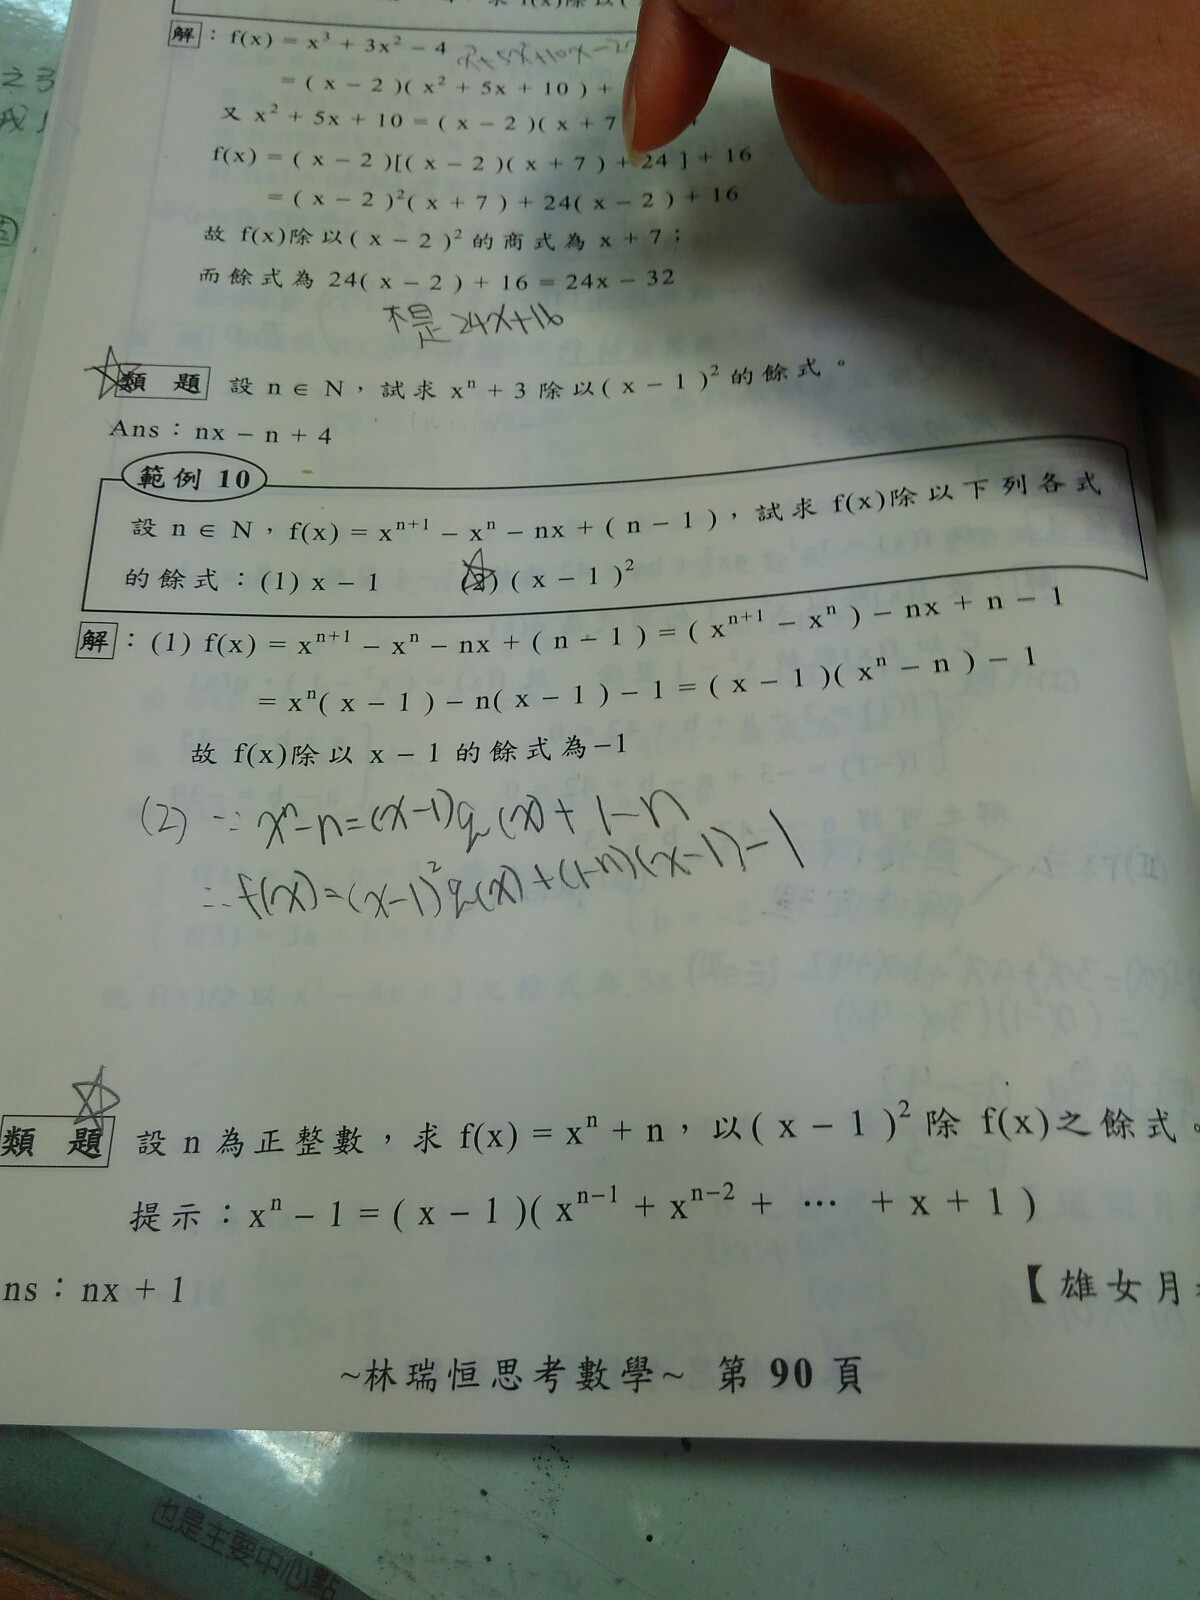 求 f(x)除以(
之
我
解：f(x) = x³ + 3x² − 4
= ( x − 2 )( x² + 5x + 10 ) +
又 x² + 5x + 10 = ( x − 2 )( x + 7
f(x) = ( x − 2 )[( x − 2 )( x + 7 ) + 24 ] + 16
= ( x − 2 )²( x + 7 ) + 24( x − 2 ) + 16
故 f(x)除以( x − 2 )² 的商式為 x + 7；
而餘式為 24( x − 2 ) + 16 = 24x − 32
不是 24x+16
類題 設 n ∈ N，試求 xⁿ + 3 除以( x − 1 )² 的餘式。
Ans：nx − n + 4
範例 10
設 n ∈ N，f(x) = xⁿ⁺¹ − xⁿ − nx + ( n − 1 )，試求 f(x)除以下列各式
的餘式：(1) x − 1 (2) ( x − 1 )²
解：(1) f(x) = xⁿ⁺¹ − xⁿ − nx + ( n − 1 ) = ( xⁿ⁺¹ − xⁿ ) − nx + n − 1
= xⁿ( x − 1 ) − n( x − 1 ) − 1 = ( x − 1 )( xⁿ − n ) − 1
故 f(x)除以 x − 1 的餘式為−1
(2) ∵ xⁿ−n=(x−1)q(x)+1−n
∴f(x)=(x−1)²q(x)+(1−n)(x−1)−1
類題 設 n 為正整數，求 f(x) = xⁿ + n，以( x − 1 )² 除 f(x)之餘式。
提示：xⁿ − 1 = ( x − 1 )( xⁿ⁻¹ + xⁿ⁻² + ⋯ + x + 1 )
ns：nx + 1 【雄女月
~林瑞恒思考數學~ 第 90 頁
也是主要中心點